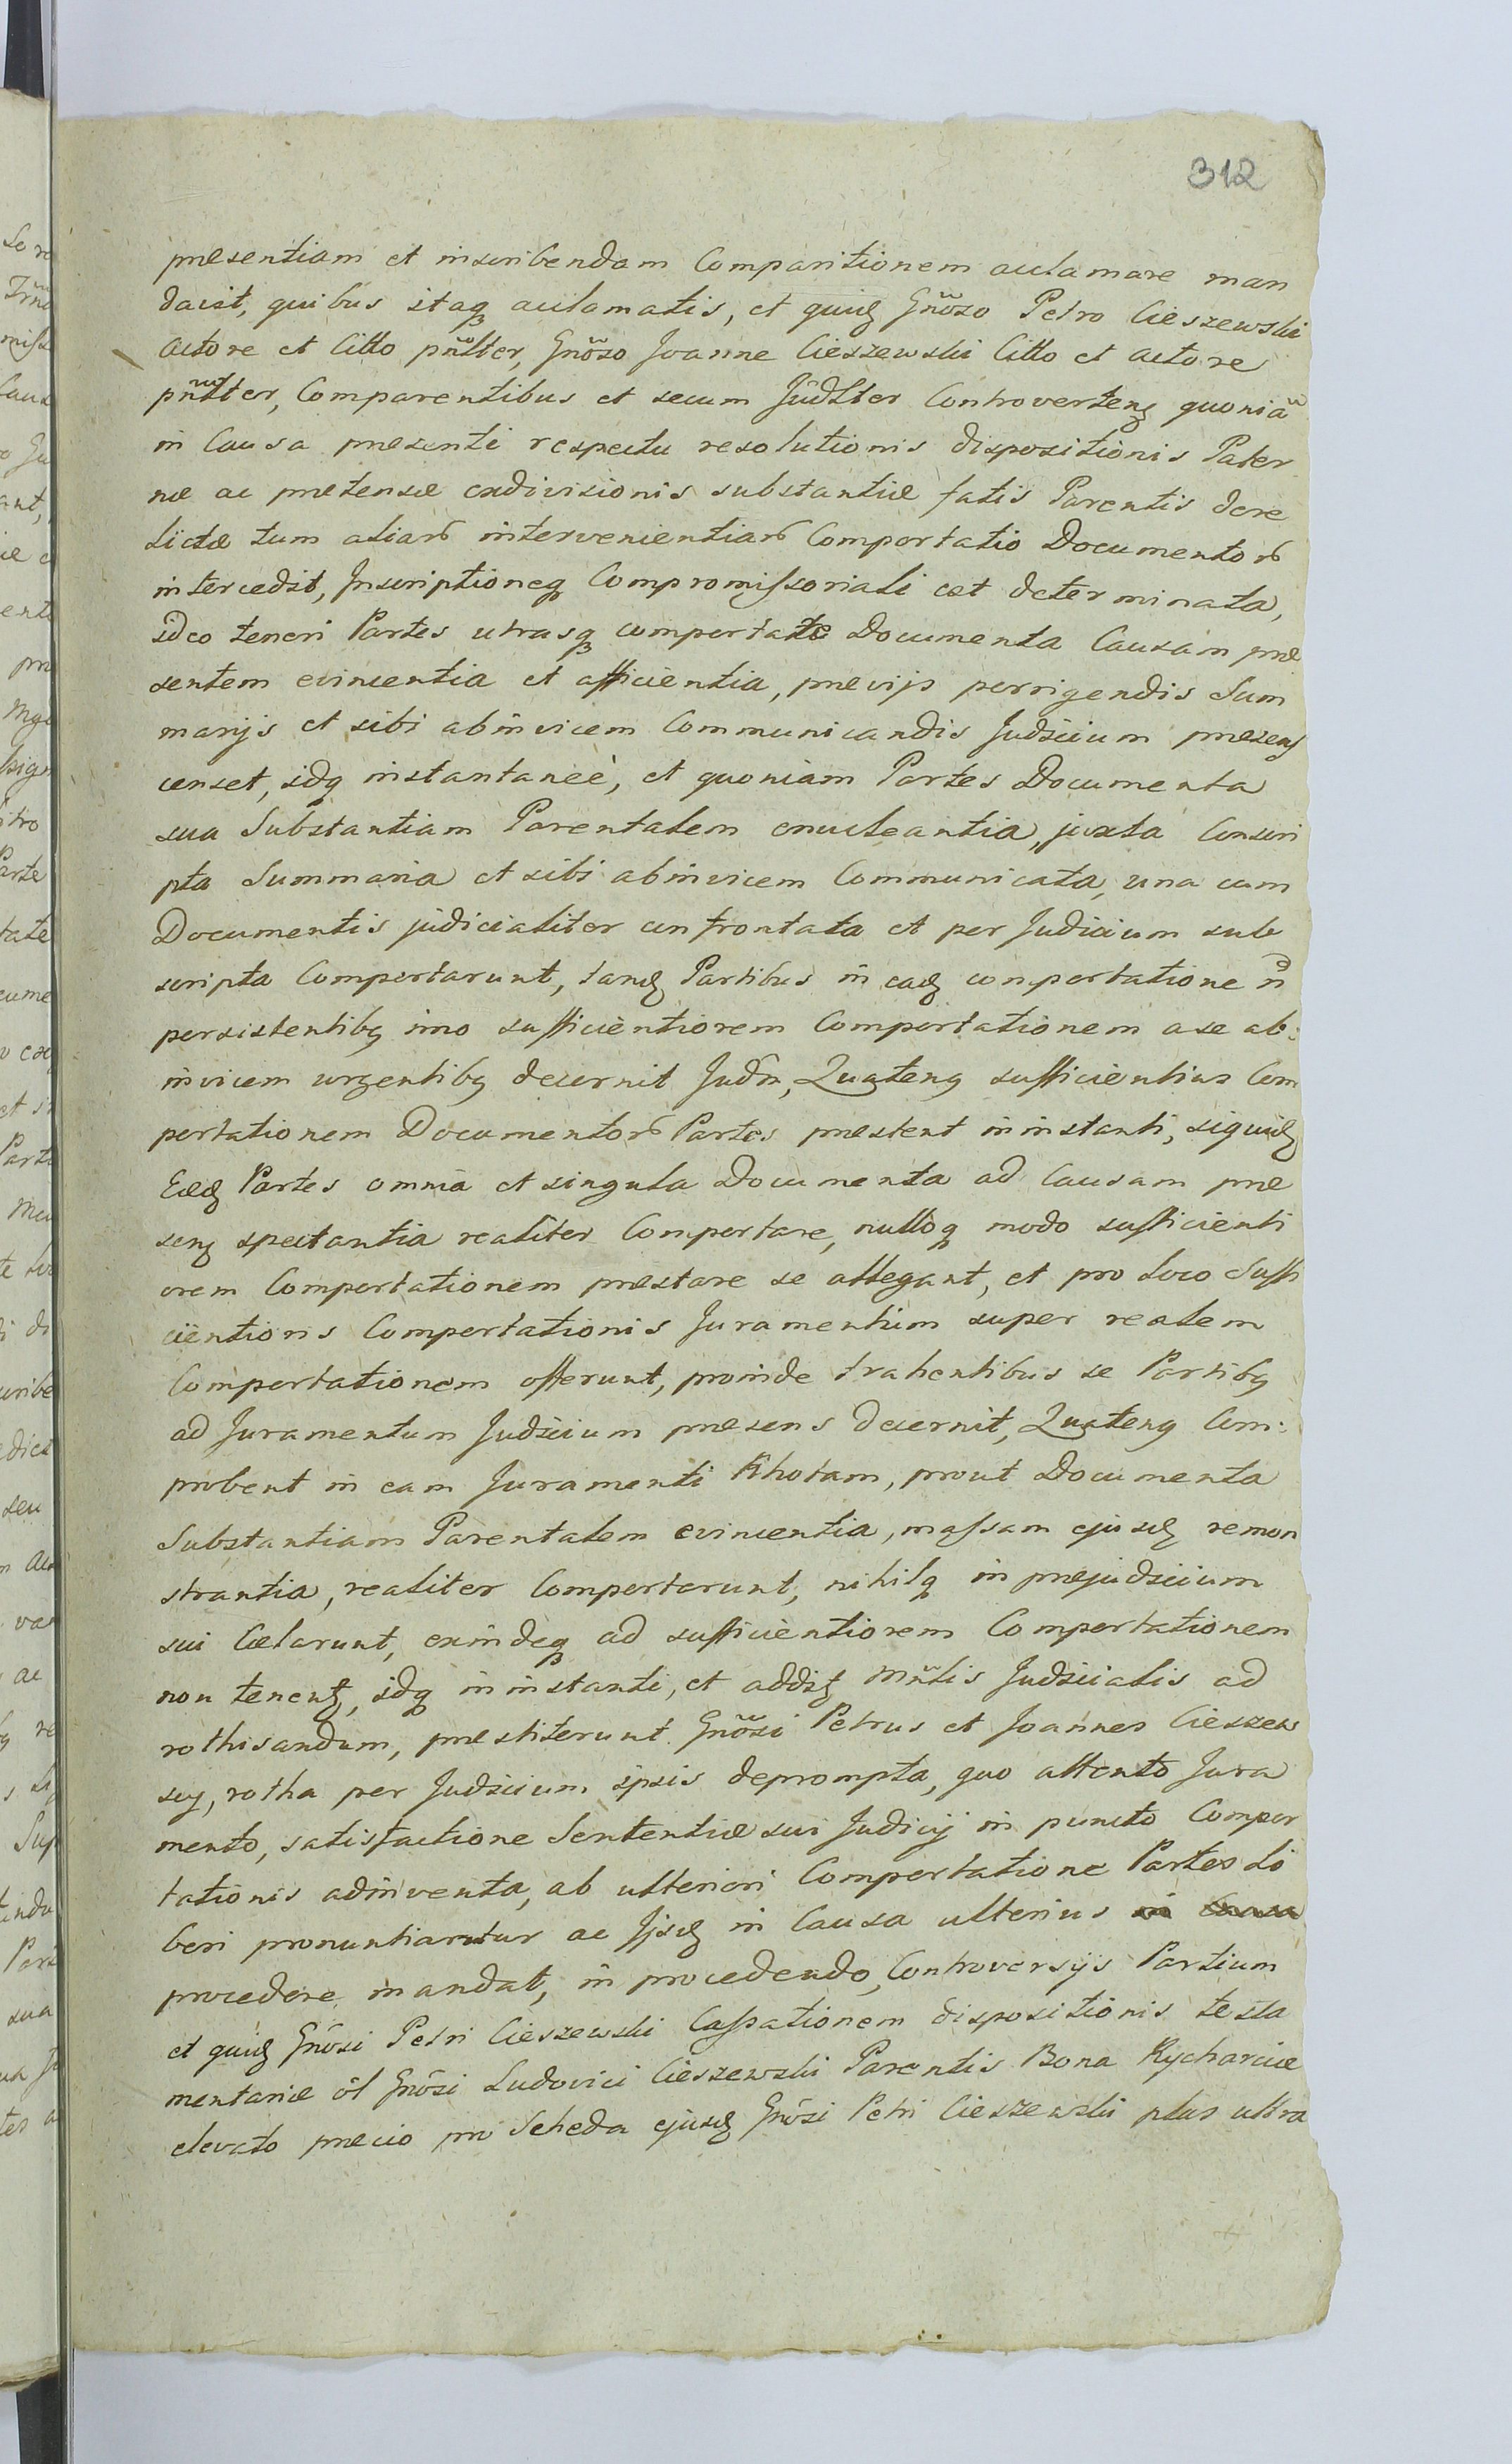 312
præsentiam et inscribendam Comparitionem acclamare man
davit, quibus itaq acclamatis, et quidẽ Gnõso Petro Cieszewski
Actore et Citto pñtter, Gnõso Joanne Cieszewski Citto et Actore
pñtter, Comparentibus et secum Jûdltter Controverteñ quoniã
in Causa præsenti respectu resolutionis dispositionis Pater
næ ac prætensæ exdivisionis substantiæ fatis Parentis dere
lictæ tum aliarũ intervenientiarũ Comportatio Documentorũ
intercedit, Inscriptioneq Compromissoriali est determinata,
ideo teneri Partes utrasq comportate Documenta Causam præ
sentem evincentia et afficientia, prævijs porrigendis Sum
marijs et sibi abinvicem Communicandis Judicium præsens
censet, idq instantaneè, et quoniam Partes Documenta
sua Substantiam Parentalem enucleantia, juxta Conscri
pta Summaria et sibi abinvicem Communicata, una cum
Documentis judicialiter confrontata et per Judicium sub
scripta Comportarunt, tandẽ Partibus in eadẽ comportatione ñ
persistentibq imo sufficientiorem Comportationem a se ab:
invicem urgentibq decernit Judm, Quatenq sufficientius Com
portationem Documentorũ Partes præstent in instanti, siquidẽ
Eædẽ Partes omnia et singula Documenta ad Causam præ
senq spectantia realiter Comportare, nulloq modo sufficienti
orem Comportationem præstare se allegant, et pro loco Suffi
cientioris Comportationis Juramentum super realem
Comportationem offerunt, proinde trahentibus se Partibq
ad Juramentum Judicium præsens decernit, Quatenq Com:
probent in eam Juramenti Rhotam, prout Documenta
Substantiam Parentalem evincentia, massam ejusdẽ remon
strantia, realiter Comportarunt, nihilq in præjudicium
sui Cælarunt, exindeq ad sufficientiorem Comportationem
non tenenẽ, idq in instanti, et addiẽ Mñlis Judicialis ad
rothisandum, præstiterunt Gnõsi Petrus et Joannes Cieszew
scy, rotha per Judicium ipsis deprompta, quo attento Jura
mento, satisfactione Sententiæ sui Judicij in puncto Compor
tationis adinventa, ab ulteriori Comportatione Partes Li
beri pronuntiantur ac Ijsdẽ in Causa ulterius
procedere mandat, in procedendo, Controversijs Partium
et quidẽ Gnõsi Petri Cieszewski Cassationem dispositionis testa
mentariæ ol Gnõsi Ludovici Cieszewski Parentis Bona Rycharciæ
elevato præcio pro Scheda ejusdẽ Gnõsi Petri Cieszewski plus ultra